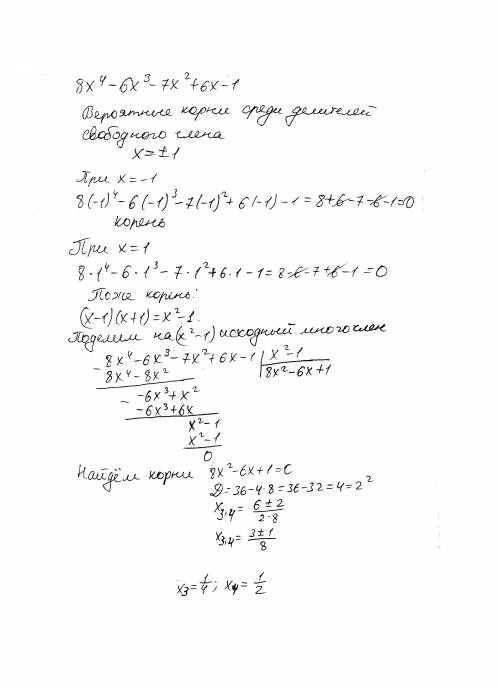 8x⁴-6x³-7x²+6x-1
Вероятные корни среди делителей
свободного члена
x=±1
При x=-1
8(-1)⁴-6(-1)³-7(-1)²+6(-1)-1=8+6-7-6-1=0
корень
При x=1
8·1⁴-6·1³-7·1²+6·1-1=8-6-7+6-1=0
Тоже корень:
(x-1)(x+1)=x²-1.
Поделим на (x²-1) исходный многочлен
8x⁴-6x³-7x²+6x-1 | x²-1
- 8x⁴-8x² 8x²-6x+1
- -6x³+x²
-6x³+6x
x²-1
x²-1
0
Найдём корни 8x²-6x+1=0
D=36-4·8=36-32=4=2²
x₃,₄= (6±2)/(2·8)
x₃,₄= (3±1)/8
x₃=1/4; x₄=1/2